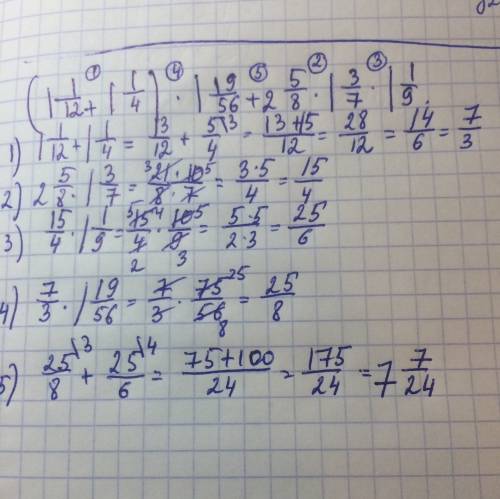 ① ④ ⑤ ② ③
(1 1/12 + 1 1/4) · 1 19/56 + 2 5/8 · 1 3/7 · 1 1/9.
1) 1 1/12 + 1 1/4 = 13/12 + 5\3/4 = 13+15/12 = 28/12 = 14/6 = 7/3
2) 2 5/8 · 1 3/7 = 3 21 · 10 5/8 · 7 = 3·5/4 = 15/4
3) 15/4 · 1 1/9 = 5 15/4 2 · 10 5/9 3 = 5·5/2·3 = 25/6
4) 7/3 · 1 19/56 = 7/3 · 75 25/56 8 = 25/8
5) 25\3/8 + 25\4/6 = 75+100/24 = 175/24 = 7 7/24